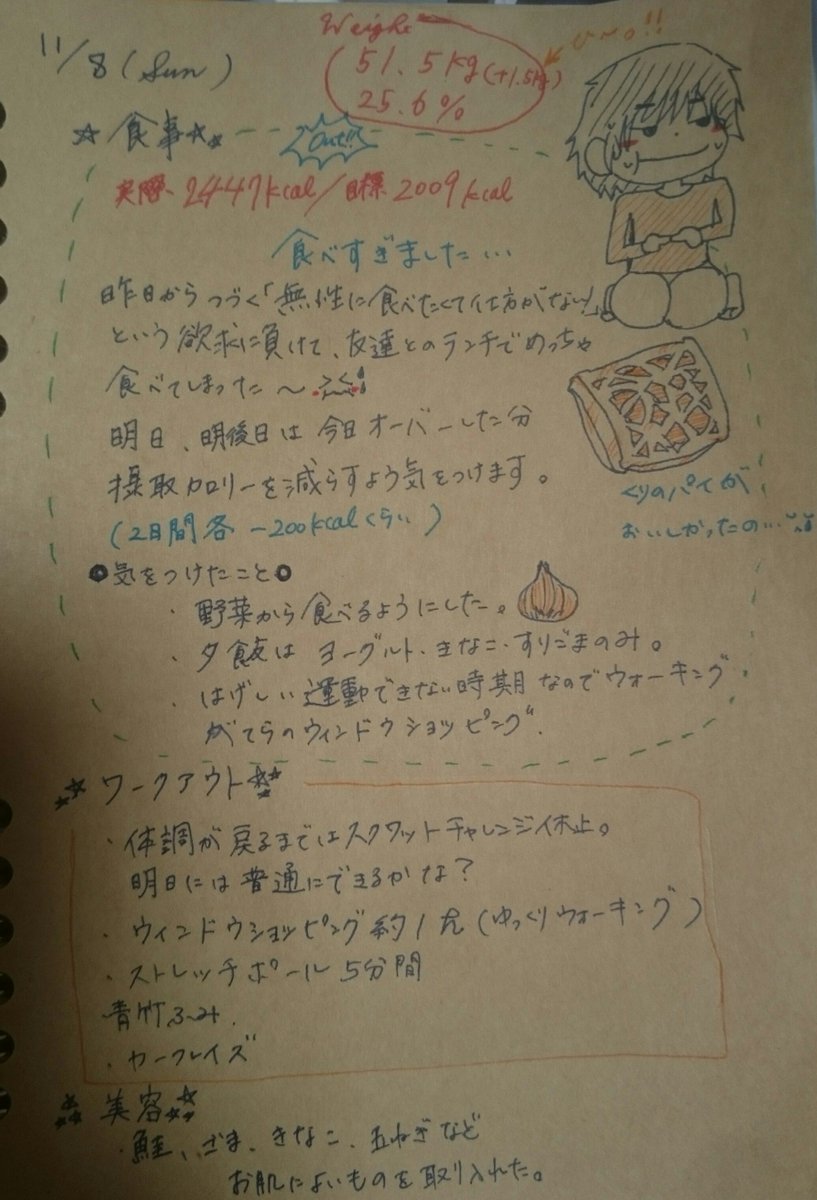 11/8 (Sun)
Weight
51.5kg(+1.5kg)
25.6%
ひ〜o!!
☆食事☆
Out!!
実際 2447kcal/目標 2009kcal
食べすぎました…
昨日からつづく「無性に食べたくて仕方がない!」
という欲求に負けて、友達とのランチでめっちゃ
食べてしまった〜
明日、明後日は今日オーバーした分
摂取カロリーを減らすよう気をつけます。
(2日間各 -200kcalくらい)
くりのパイが
おいしかったの…
気をつけたこと
・野菜から食べるようにした。
・夕飯はヨーグルト・きなこ・すりごまのみ。
・はげしい運動できない時期なのでウォーキング
がてらのウィンドウショッピング。
☆ワークアウト☆
・体調が戻るまではスクワットチャレンジ休止。
明日には普通にできるかな?
・ウィンドウショッピング約1h(ゆっくりウォーキング)
・ストレッチポール5分間
・青竹ふみ.
・カーフレイズ
☆美容☆
・鮭、ごま、きなこ、玉ねぎなど
お肌によいものを取り入れた。